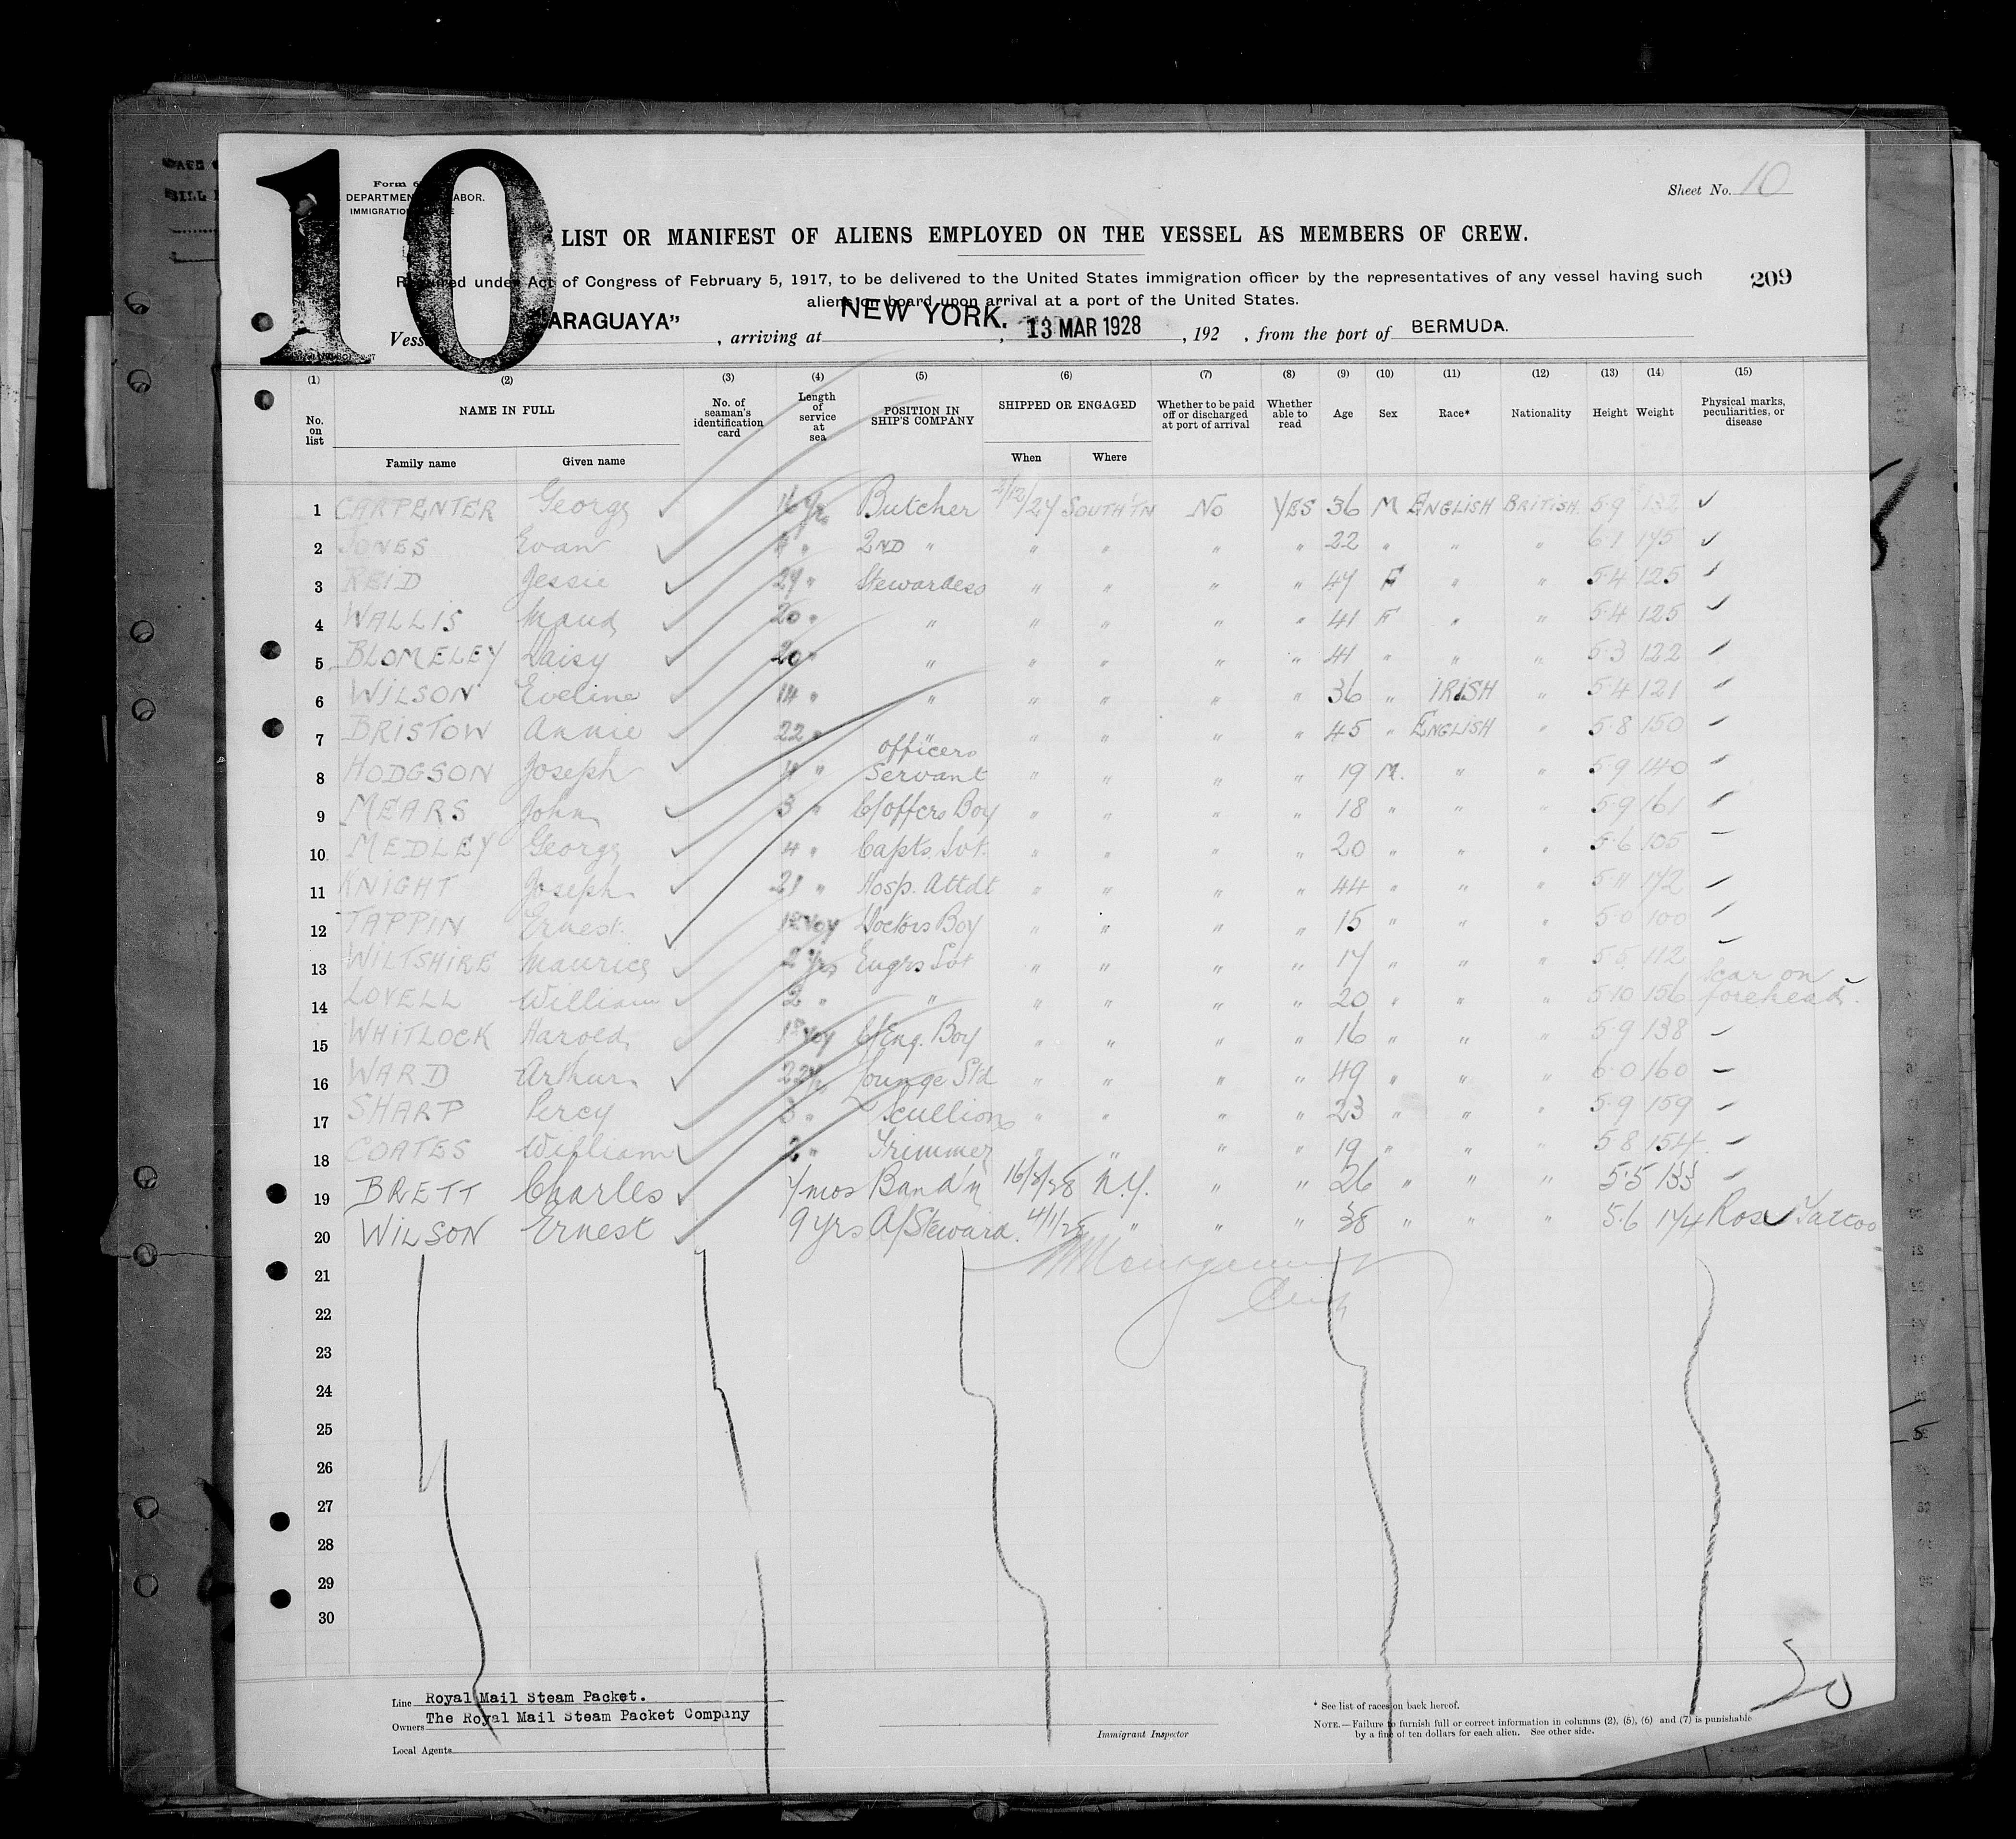 10
Form 6
DEPARTMENT LABOR.
IMMIGRATION
Sheet No. 10
LIST OR MANIFEST OF ALIENS EMPLOYED ON THE VESSEL AS MEMBERS OF CREW.
Required under Act of Congress of February 5, 1917, to be delivered to the United States immigration officer by the representatives of any vessel having such
aliens on board upon arrival at a port of the United States.
209
Vess ARAGUAYA" , arriving at NEW YORK. , 13 MAR 1928 , 192 , from the port of BERMUDA.
(1) (2) (3) (4) (5) (6) (7) (8) (9) (10) (11) (12) (13) (14) (15)
No. on list NAME IN FULL No. of seaman's identification card Length of service at sea POSITION IN SHIP'S COMPANY SHIPPED OR ENGAGED Whether to be paid off or discharged at port of arrival Whether able to read Age Sex Race* Nationality Height Weight Physical marks, peculiarities, or disease
Family name Given name When Where
1 CARPENTER George 16 yrs Butcher /12/27 SOUTH'TN No YES 36 M ENGLISH BRITISH 5.9 132 ✓
2 JONES Evan " 2ND " " " " " 22 " " " 6 1 175 ✓
3 REID Jessie 27 " Stewardess " " " " 47 F " " 5.4 125
4 WALLIS Maud 20 " " " " " " 41 F " " 5.4 125
5 BLOMELEY Daisy 20 " " " " " " 41 " " " 5.3 122
6 WILSON Eveline 14 " " " " " " 36 " IRISH " 5.4 121
7 BRISTOW Annie 22 " " " " " " 45 " ENGLISH " 5.8 150
8 HODGSON Joseph 4 " officers Servant " " " " 19 M. " " 5.9 140
9 MEARS John 3 " C/offers Boy " " " " 18 " " " 5.9 161
10 MEDLEY George 4 " Capts. Svt. " " " " 20 " " " 5.6 105
11 KNIGHT Joseph 21 " Hosp. Attdt " " " " 44 " " " 5 11 172
12 TAPPIN Ernest 1st Voy Doctors Boy " " " " 15 " " " 5.0 100
13 WILTSHIRE Maurice 2 yrs Engrs Svt " " " " 17 " " " 5.5 112
14 LOVELL William 2 " " " " " " 20 " " " 5.10 156 Scar on forehead.
15 WHITLOCK Harold 1st Voy C/Eng. Boy " " " " 16 " " " 5.9 138
16 WARD Arthur 22 yrs Lounge Std " " " " 49 " " " 6.0 160
17 SHARP Percy 3 " Scullion " " " " 23 " " " 5.9 159
18 COATES William 2 " Trimmer " " " " 19 " " " 5 8 154
19 BRETT Charles 7 mos Band'n 16/ /28 N.Y. " " 26 " " " 5.5 133
20 WILSON Ernest 9 yrs A/Steward. 4/1/28 " " " 38 " " " 5.6 174 Rose Tattoo
21
22
23
24
25
26
27
28
29
30
20
Line Royal Mail Steam Packet.
Owners The Royal Mail Steam Packet Company
Local Agents
Immigrant Inspector
* See list of races on back hereof.
NOTE.—Failure to furnish full or correct information in columns (2), (5), (6) and (7) is punishable
by a fine of ten dollars for each alien. See other side.